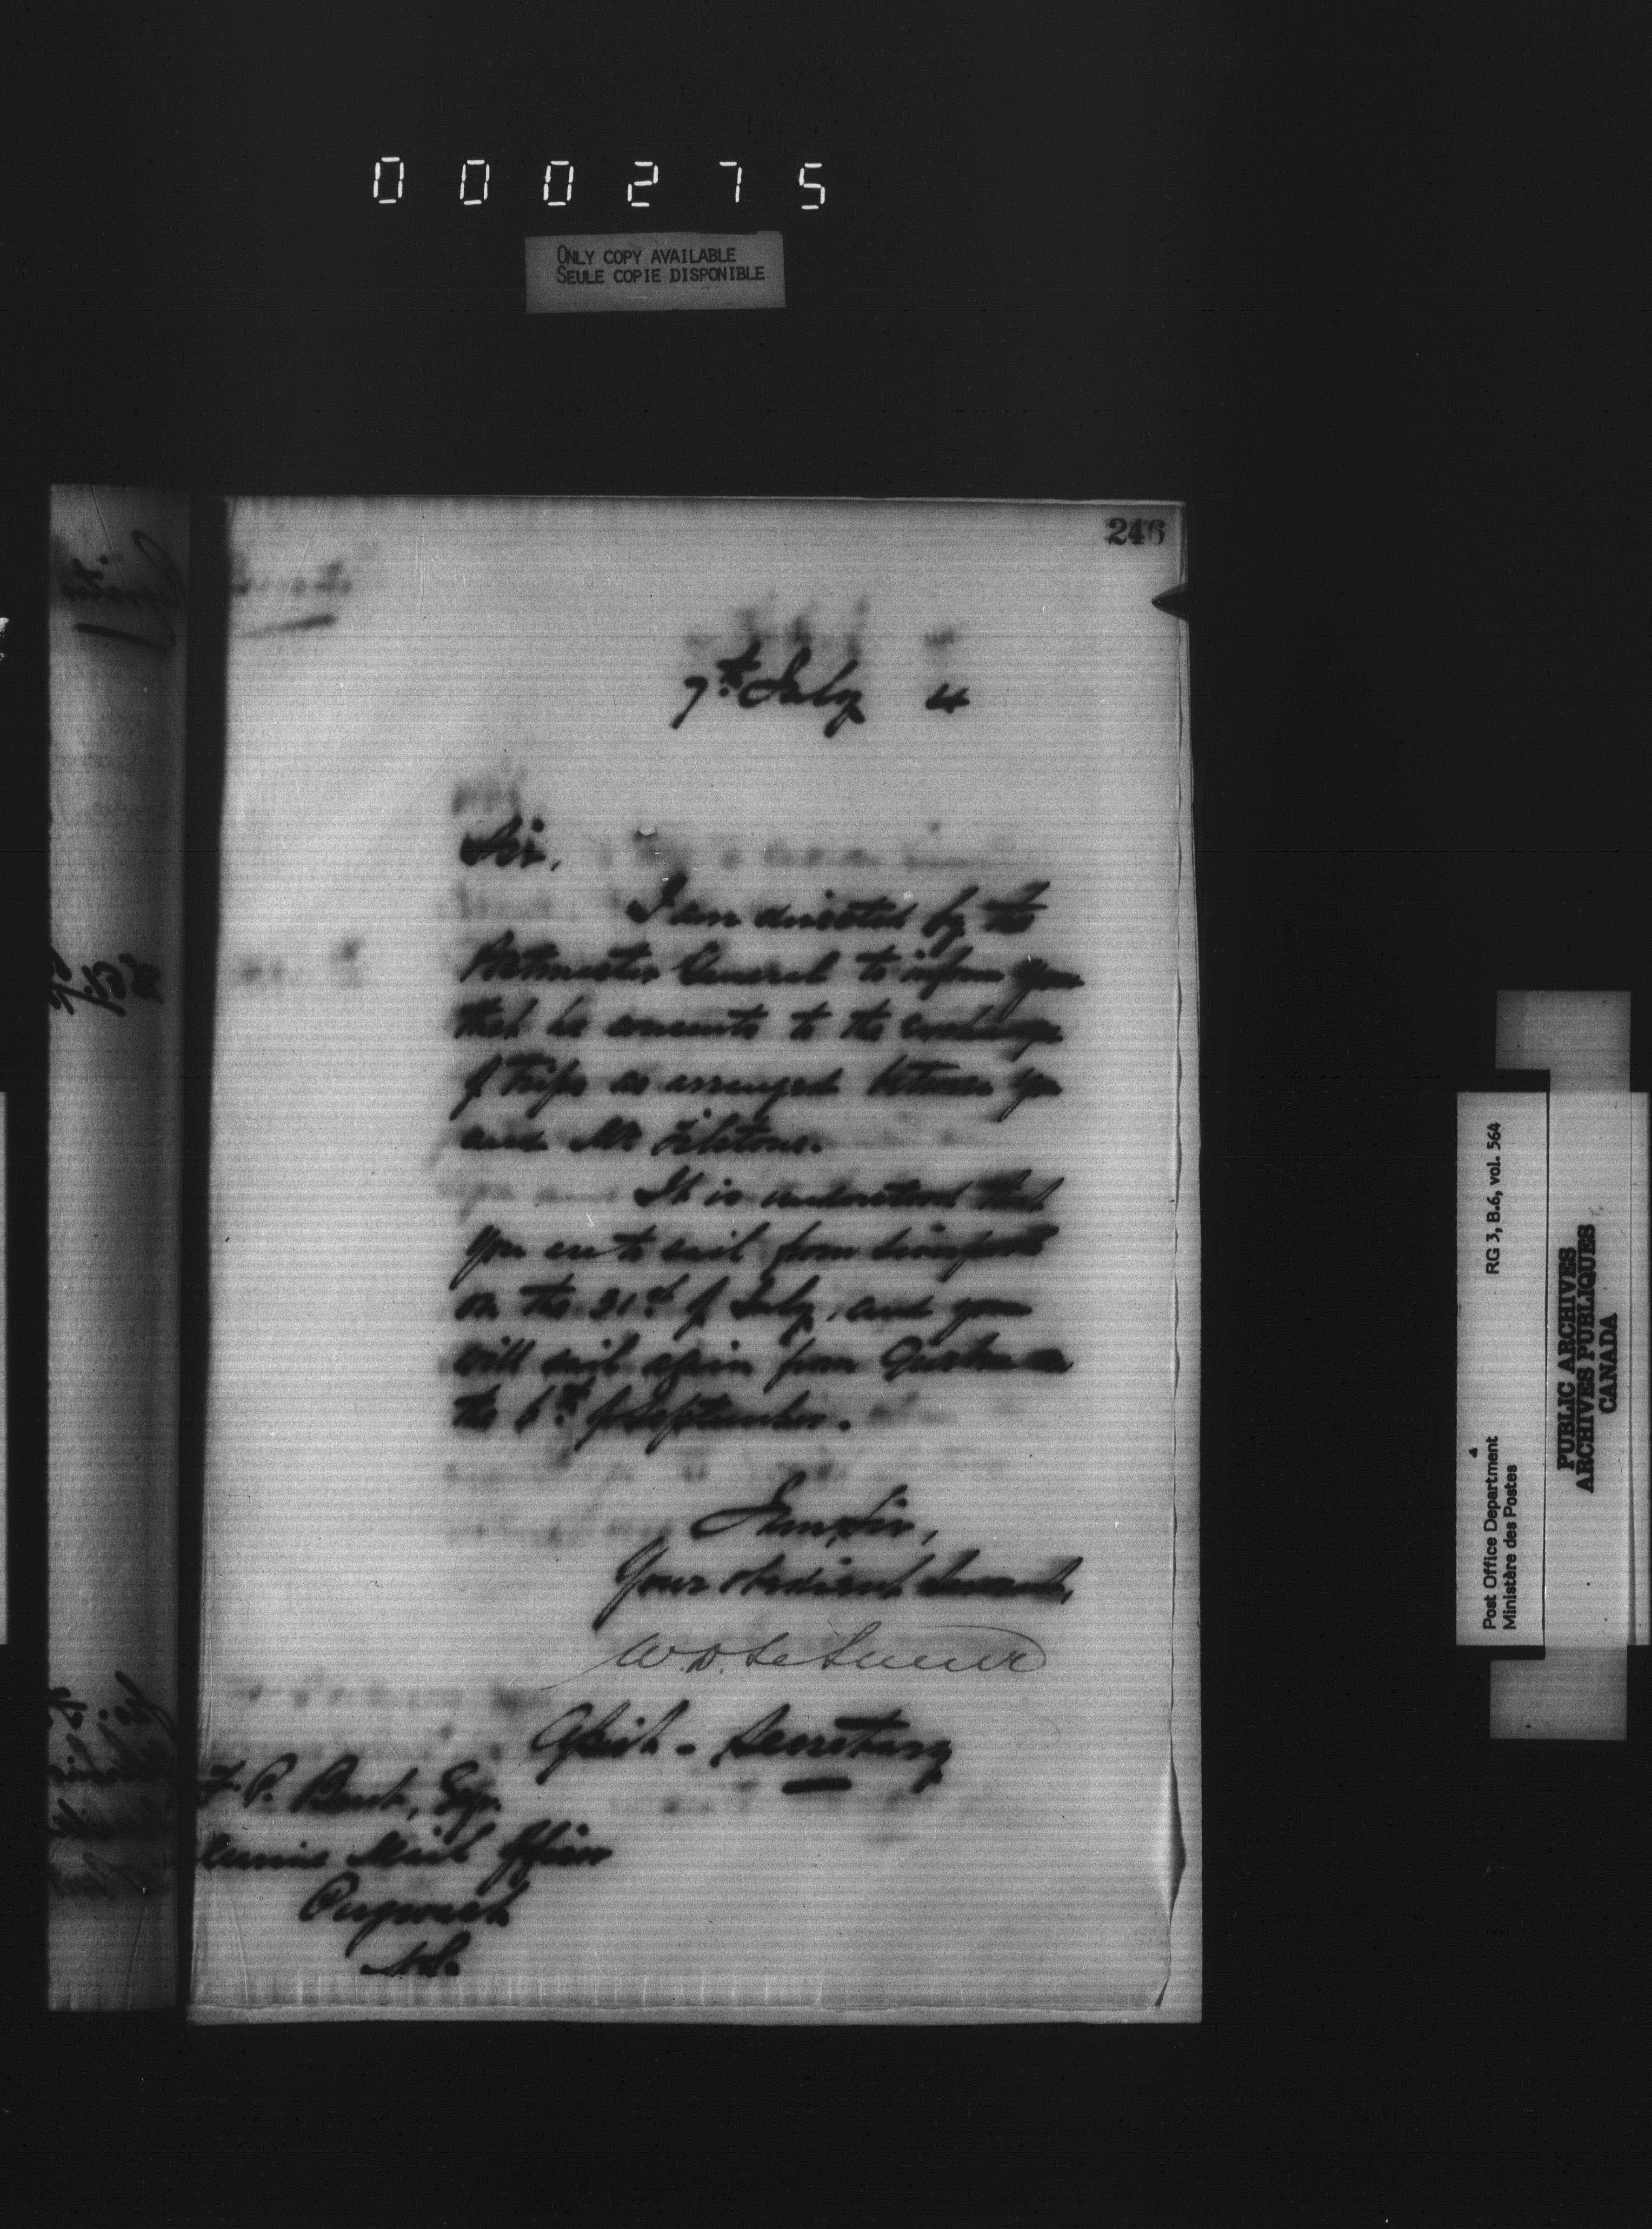 000275
ONLY COPY AVAILABLE
SEULE COPIE DISPONIBLE
246
7th July 4
Sir,
I am directed by the
Postmaster General to inform you
that he consents to the exchange
of Trips as arranged between you
and Mr
It is understood that
you are to sail from Liverpool
on the 31st of July, and you
will sail again from Quebec on
the 6th of September.
I am, Sir,
Your obedient Servant,
W. D. LeSueur
Assist - Secretary
F. P. Bent, Esq.
Marine Mail Officer
Pugwash
N.S.
Post Office Department
Ministère des Postes
RG 3, B.6, vol. 564
PUBLIC ARCHIVES
ARCHIVES PUBLIQUES
CANADA